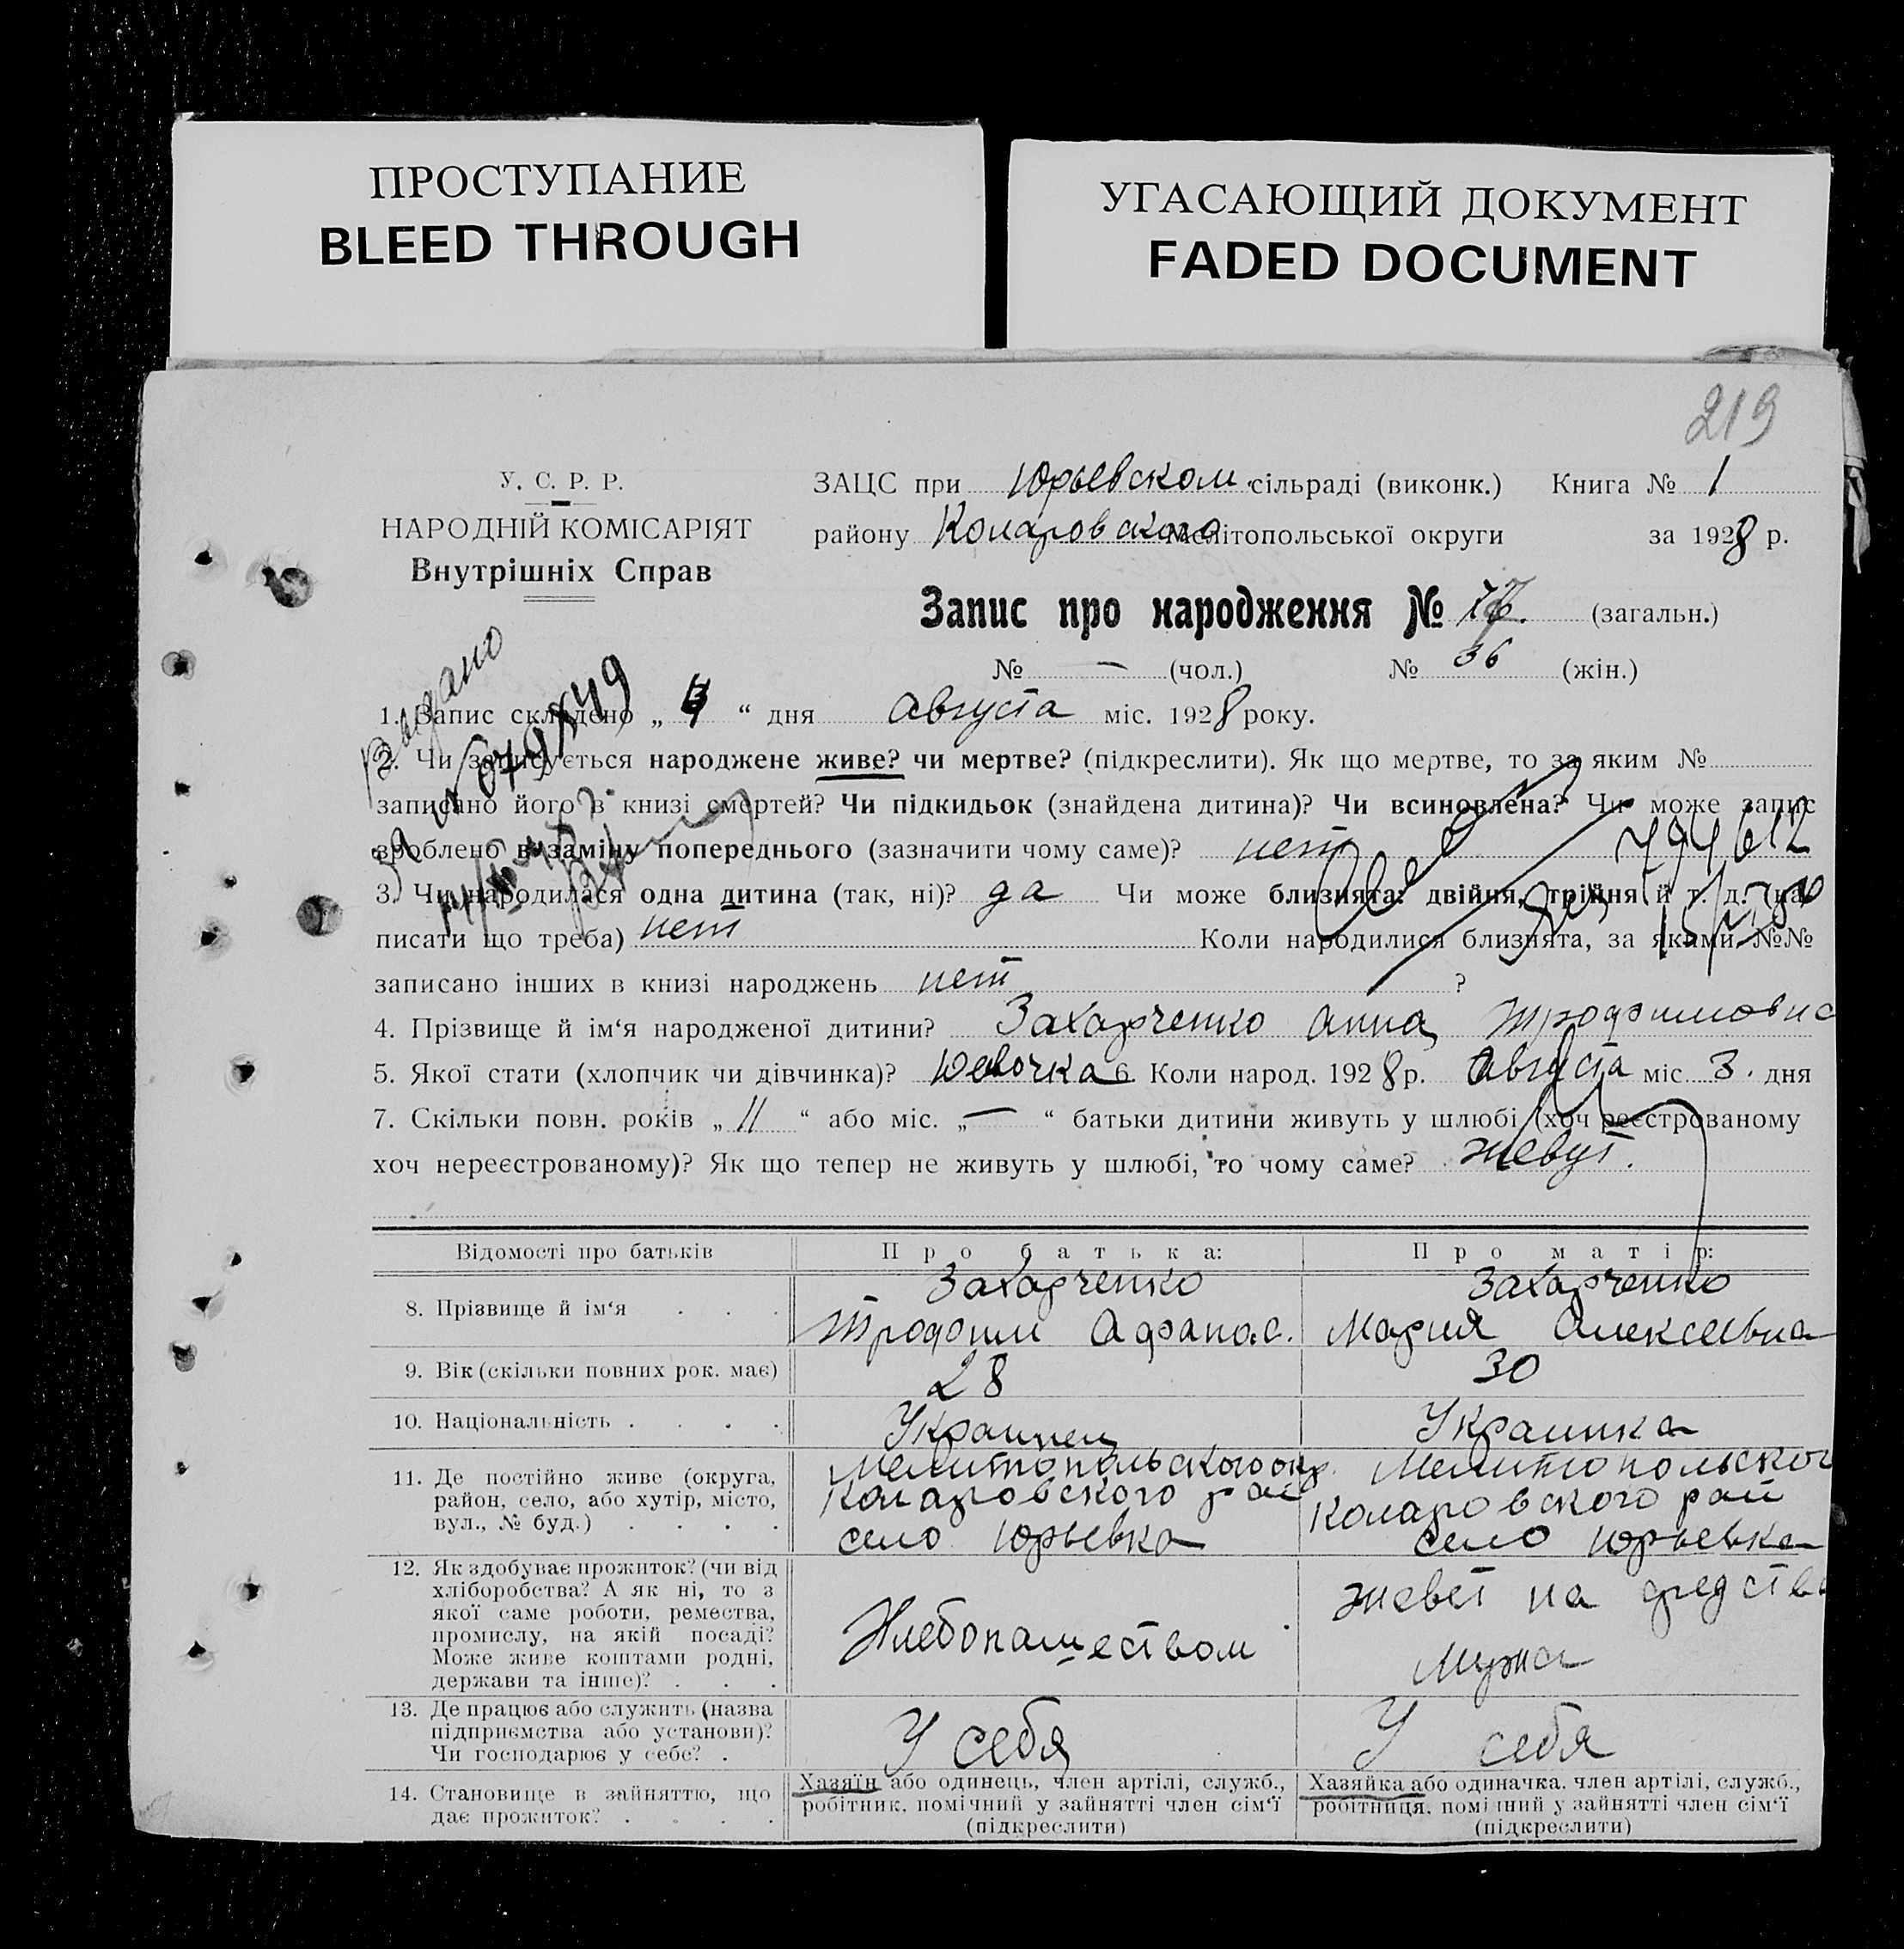 ПРОСТУПАНИЕ
BLEED THROUGH
УГАСАЮЩИЙ ДОКУМЕНТ
FADED DOCUMENT
219
У. С. Р. Р.
НАРОДНІЙ КОМІСАРІЯТ
Внутрішніх Справ
ЗАЦС при Юрьевском сільраді (виконк.) Книга № 1
району Коларовского Мелітопольської округи за 1928 р.
Запис про народження № (загальн.)
№ — (чол.) № 36 (жін.)
Выдано
1. Запис складено „ 4 “ дня Августа міс. 1928 року.
2. Чи записується народжене живе? чи мертве? (підкреслити). Як що мертве, то за яким №
записано його в книзі смертей? Чи підкидьок (знайдена дитина)? Чи всиновлена? Чи може запис
зроблено взаміну попереднього (зазначити чому саме)? нет
3. Чи народилася одна дитина (так, ні)? да Чи може близнята: двійня, трійня й т. д. (на-
писати що треба) нет Коли народилися близнята, за якими №№
записано інших в книзі народжень нет ?
4. Прізвище й ім‘я народженої дитини? Захарченко Анна Трофимовна
5. Якої стати (хлопчик чи дівчинка)? Девочка 6. Коли народ. 1928 р. Августа міс. 3. дня
7. Скільки повн. років „ 11 “ або міс. „ — “ батьки дитини живуть у шлюбі (хоч реєстрованому
хоч нереєстрованому)? Як що тепер не живуть у шлюбі, то чому саме? живут.
Відомості про батьків Про батька: Про матір:
8. Прізвище й ім‘я . . . Захарченко Трофим Афанас. Захарченко Мария Алексеевна
9. Вік (скільки повних рок. має) 28 30
10. Національність . . . . Украинец Украинка
11. Де постійно живе (округа,
район, село, або хутір, місто,
вул., № буд.) . . . .
Мелитопольского окр.
Коларовского рай
село Юрьевка
Мелитопольског
Коларовского рай
село Юрьевка
12. Як здобуває прожиток? (чи від
хліборобства? А як ні, то з
якої саме роботи, ремества,
промислу, на якій посаді?
Може живе коштами родні,
держави та інше)? . . .
Хлебопашеством
живет на средства
мужа
13. Де працює або служить (назва
підприємства або установи)?
Чи господарює у себе? .
У себя
У себя
14. Становище в зайняттю, що
дає прожиток? . . . .
Хазяїн або одинець, член артілі, служб.,
робітник, помічний у зайнятті член сім‘ї
(підкреслити)
Хазяйка або одиначка, член артілі, служб.,
робітниця, помічний у зайнятті член сім‘ї
(підкреслити)